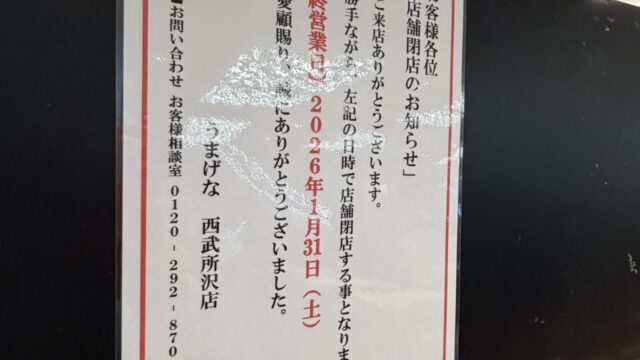 お客様各位
店舗閉店のお知らせ」
ご来店ありがとうございます。
勝手ながら、左記の日時で店舗閉店する事となりま
終営業日」2026年1月31日(土)
愛顧賜り、誠にありがとうございました。
うまげな 西武所沢店
■お問い合わせ お客様相談室 0120-292-870